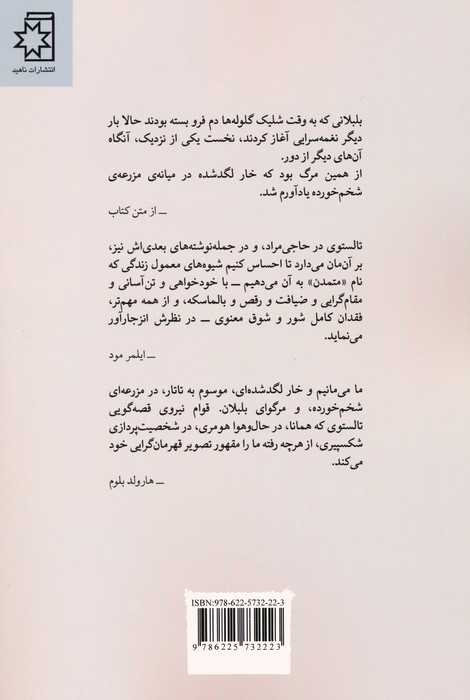 انتشارات ناهید
بلبلانی که به وقت شلیک گلوله‌ها دم فرو بسته بودند حالا بار
دیگر نغمه‌سرایی آغاز کردند، نخست یکی از نزدیک، آنگاه
آن‌های دیگر از دور.
از همین مرگ بود که خار لگدشده در میانه‌ی مزرعه‌ی
شخم‌خورده یادآورم شد.
ــ از متن کتاب
تالستوی در حاجی‌مراد، و در جمله‌نوشته‌های بعدی‌اش نیز،
بر آن‌مان می‌دارد تا احساس کنیم شیوه‌های معمول زندگی که
نام «متمدن» به آن می‌دهیم ــ با خودخواهی و تن‌آسانی و
مقام‌گرایی و ضیافت و رقص و بالماسکه، و از همه مهم‌تر،
فقدان کامل شور و شوق معنوی ــ در نظرش انزجارآور
می‌نماید.
ــ ایلمر مود
ما می‌مانیم و خار لگدشده‌ای، موسوم به تاتار، در مزرعه‌ای
شخم‌خورده، و مرگوای بلبلان. قوام نیروی قصه‌گویی
تالستوی که همانا، در حال‌وهوا هومری، در شخصیت‌پردازی
شکسپیری، از هرچه رفته ما را مقهور تصویر قهرمان‌گرایی خود
می‌کند.
ــ هارولد بلوم
ISBN:978-622-5732-22-3
9 786225 732223